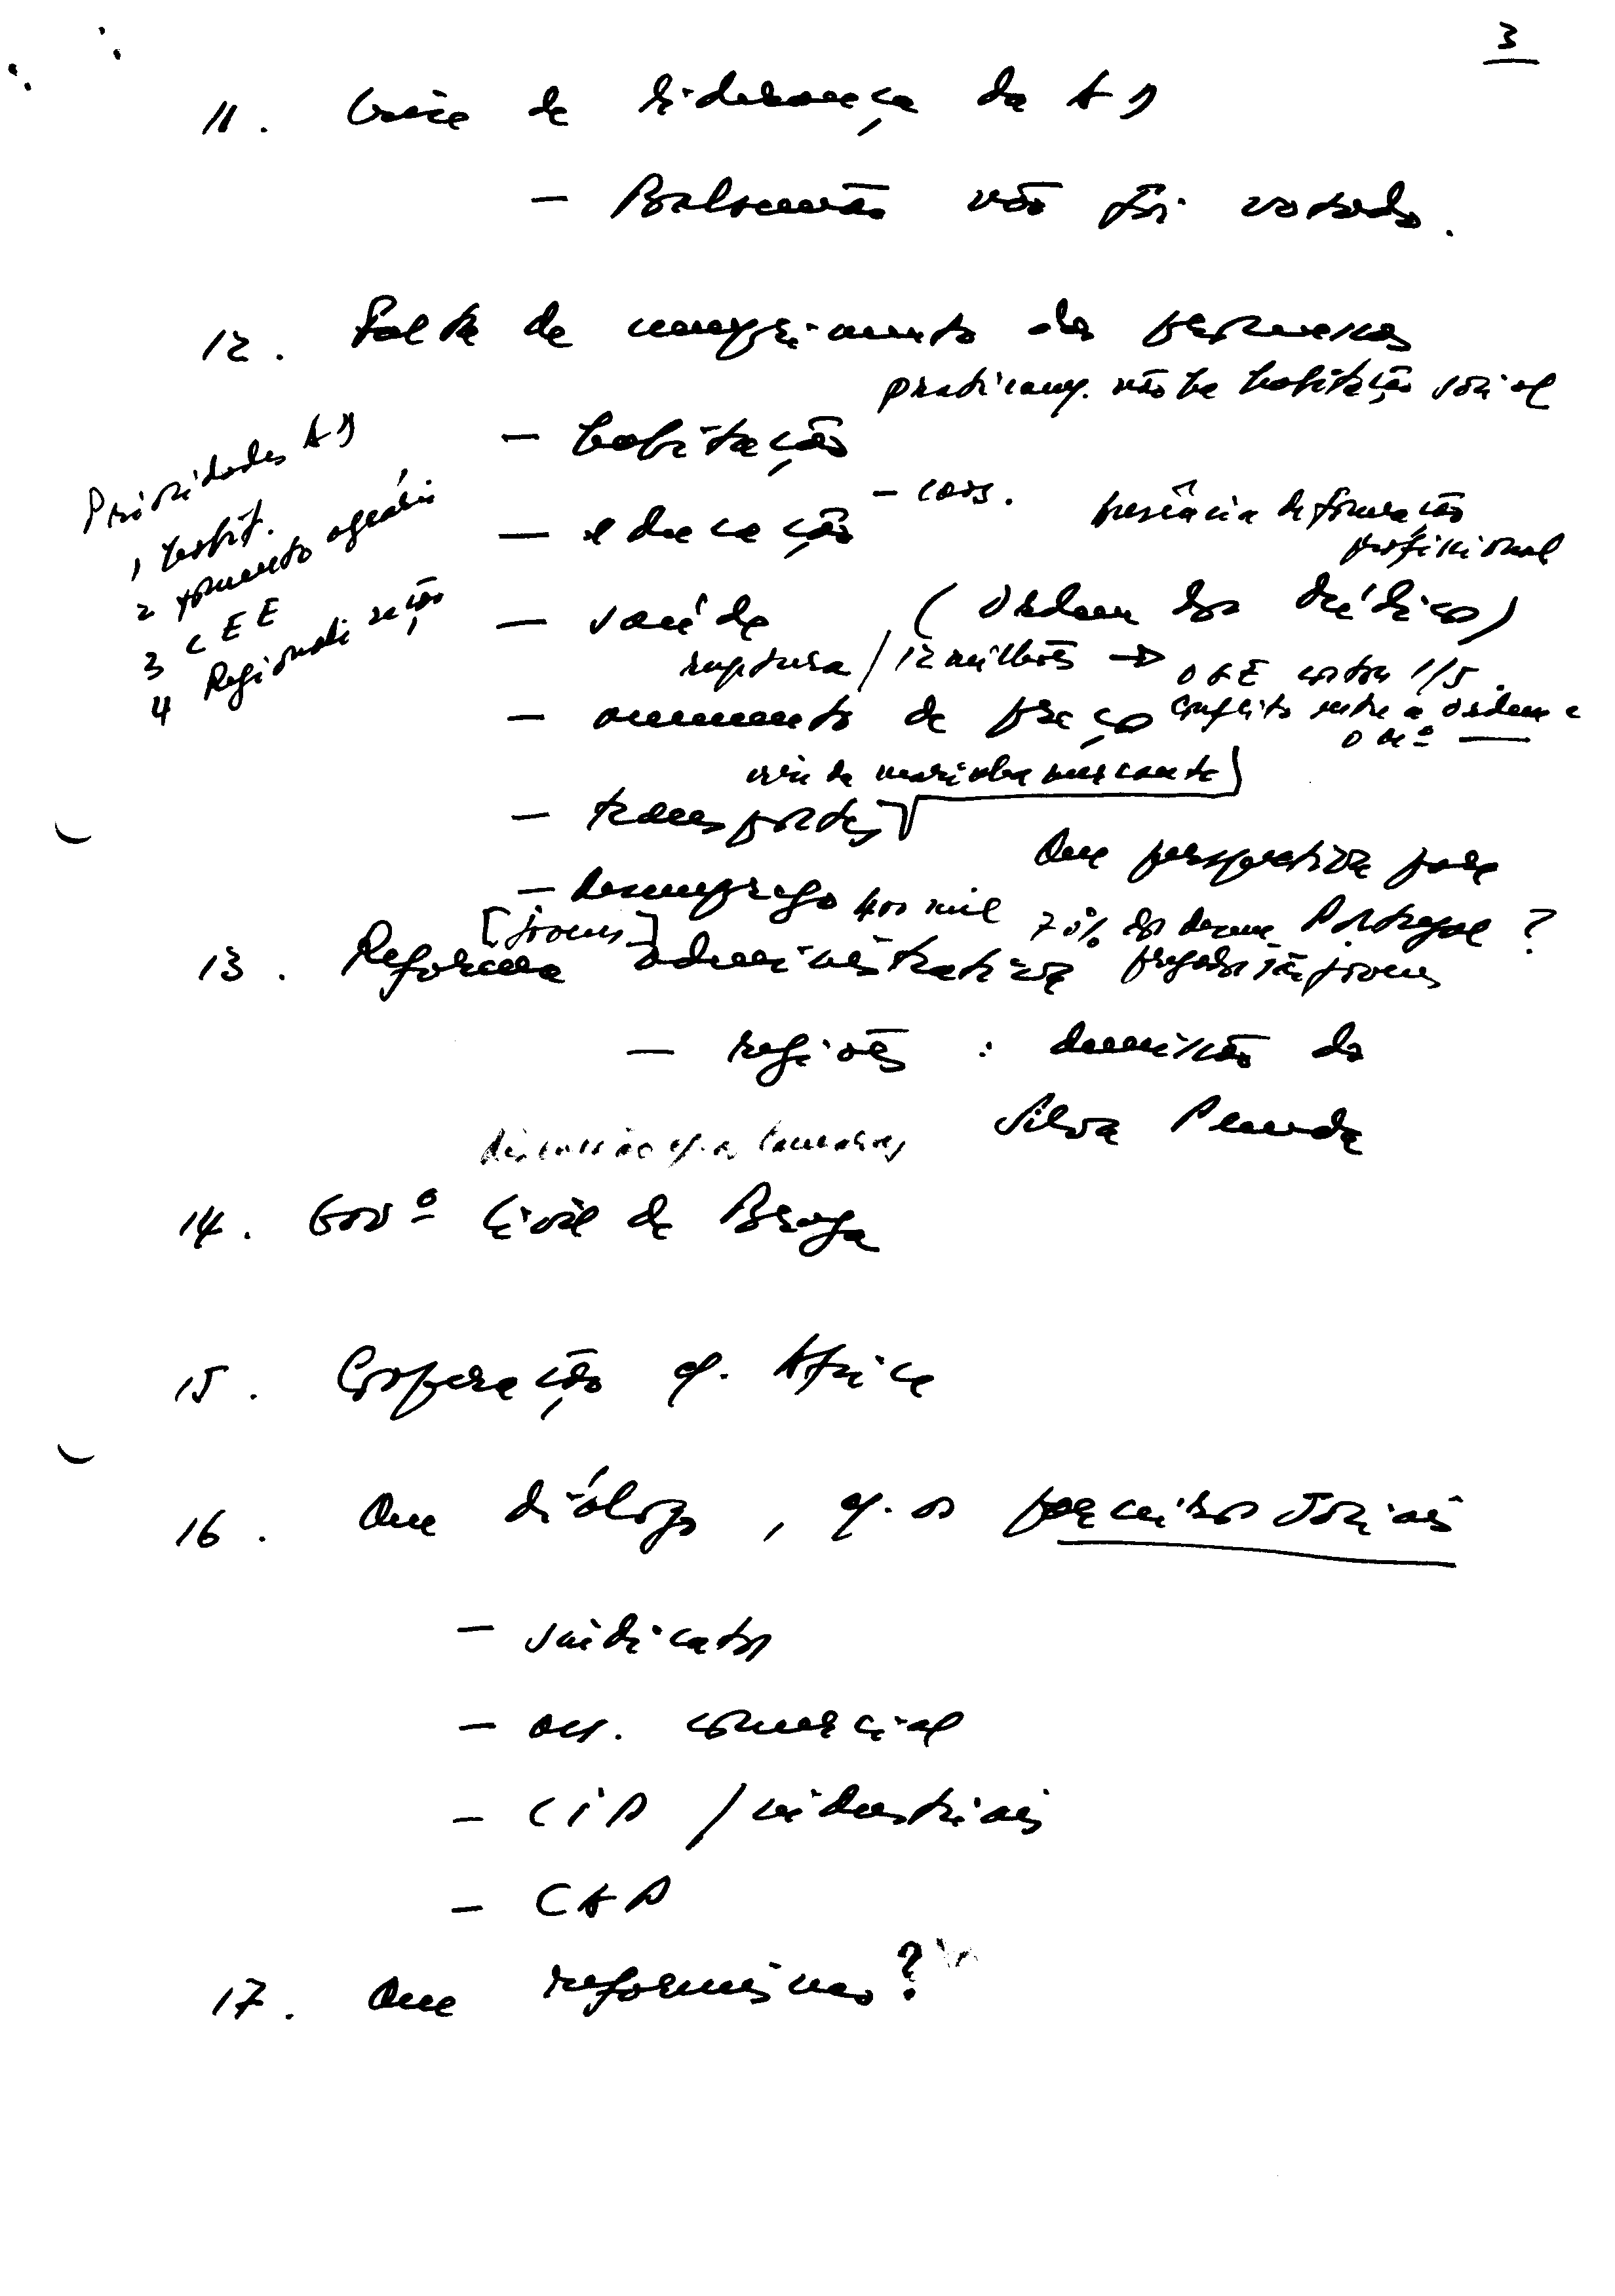 3
11. Crise de liderança da AD
- Balsemão não foi votado.
12. Falta de cumprimento das promessas
praticam/. não há habitação social
- habitação
Prioridades AD
1 habit.
2 fomento agrário
3 CEE
4 Regionalização
- educação
carência de formação
profissional
- saúde (Ordem dos Médicos)
ruptura / 12 milhões → OGE contou 1/5.
- aumento de preços
conflito entre a ordem e
o
crise da marinha mercante
- transportes
Que perspectiva para
Portugal ?
- desemprego 400 mil 70% dos desem
pregados são jovens
[jovens]
13. Reforma administrativa
- regiões : demissão do
Silva Peneda
discussão c/. as Camaras
14. Govº Civil de Braga
15. Cooperação c/. Africa
16. Que diálogo, c/. os parceiros sociais
- sindicatos
- ass. comercial
- CIP / industriais
- CAP
17. Que reformismo?